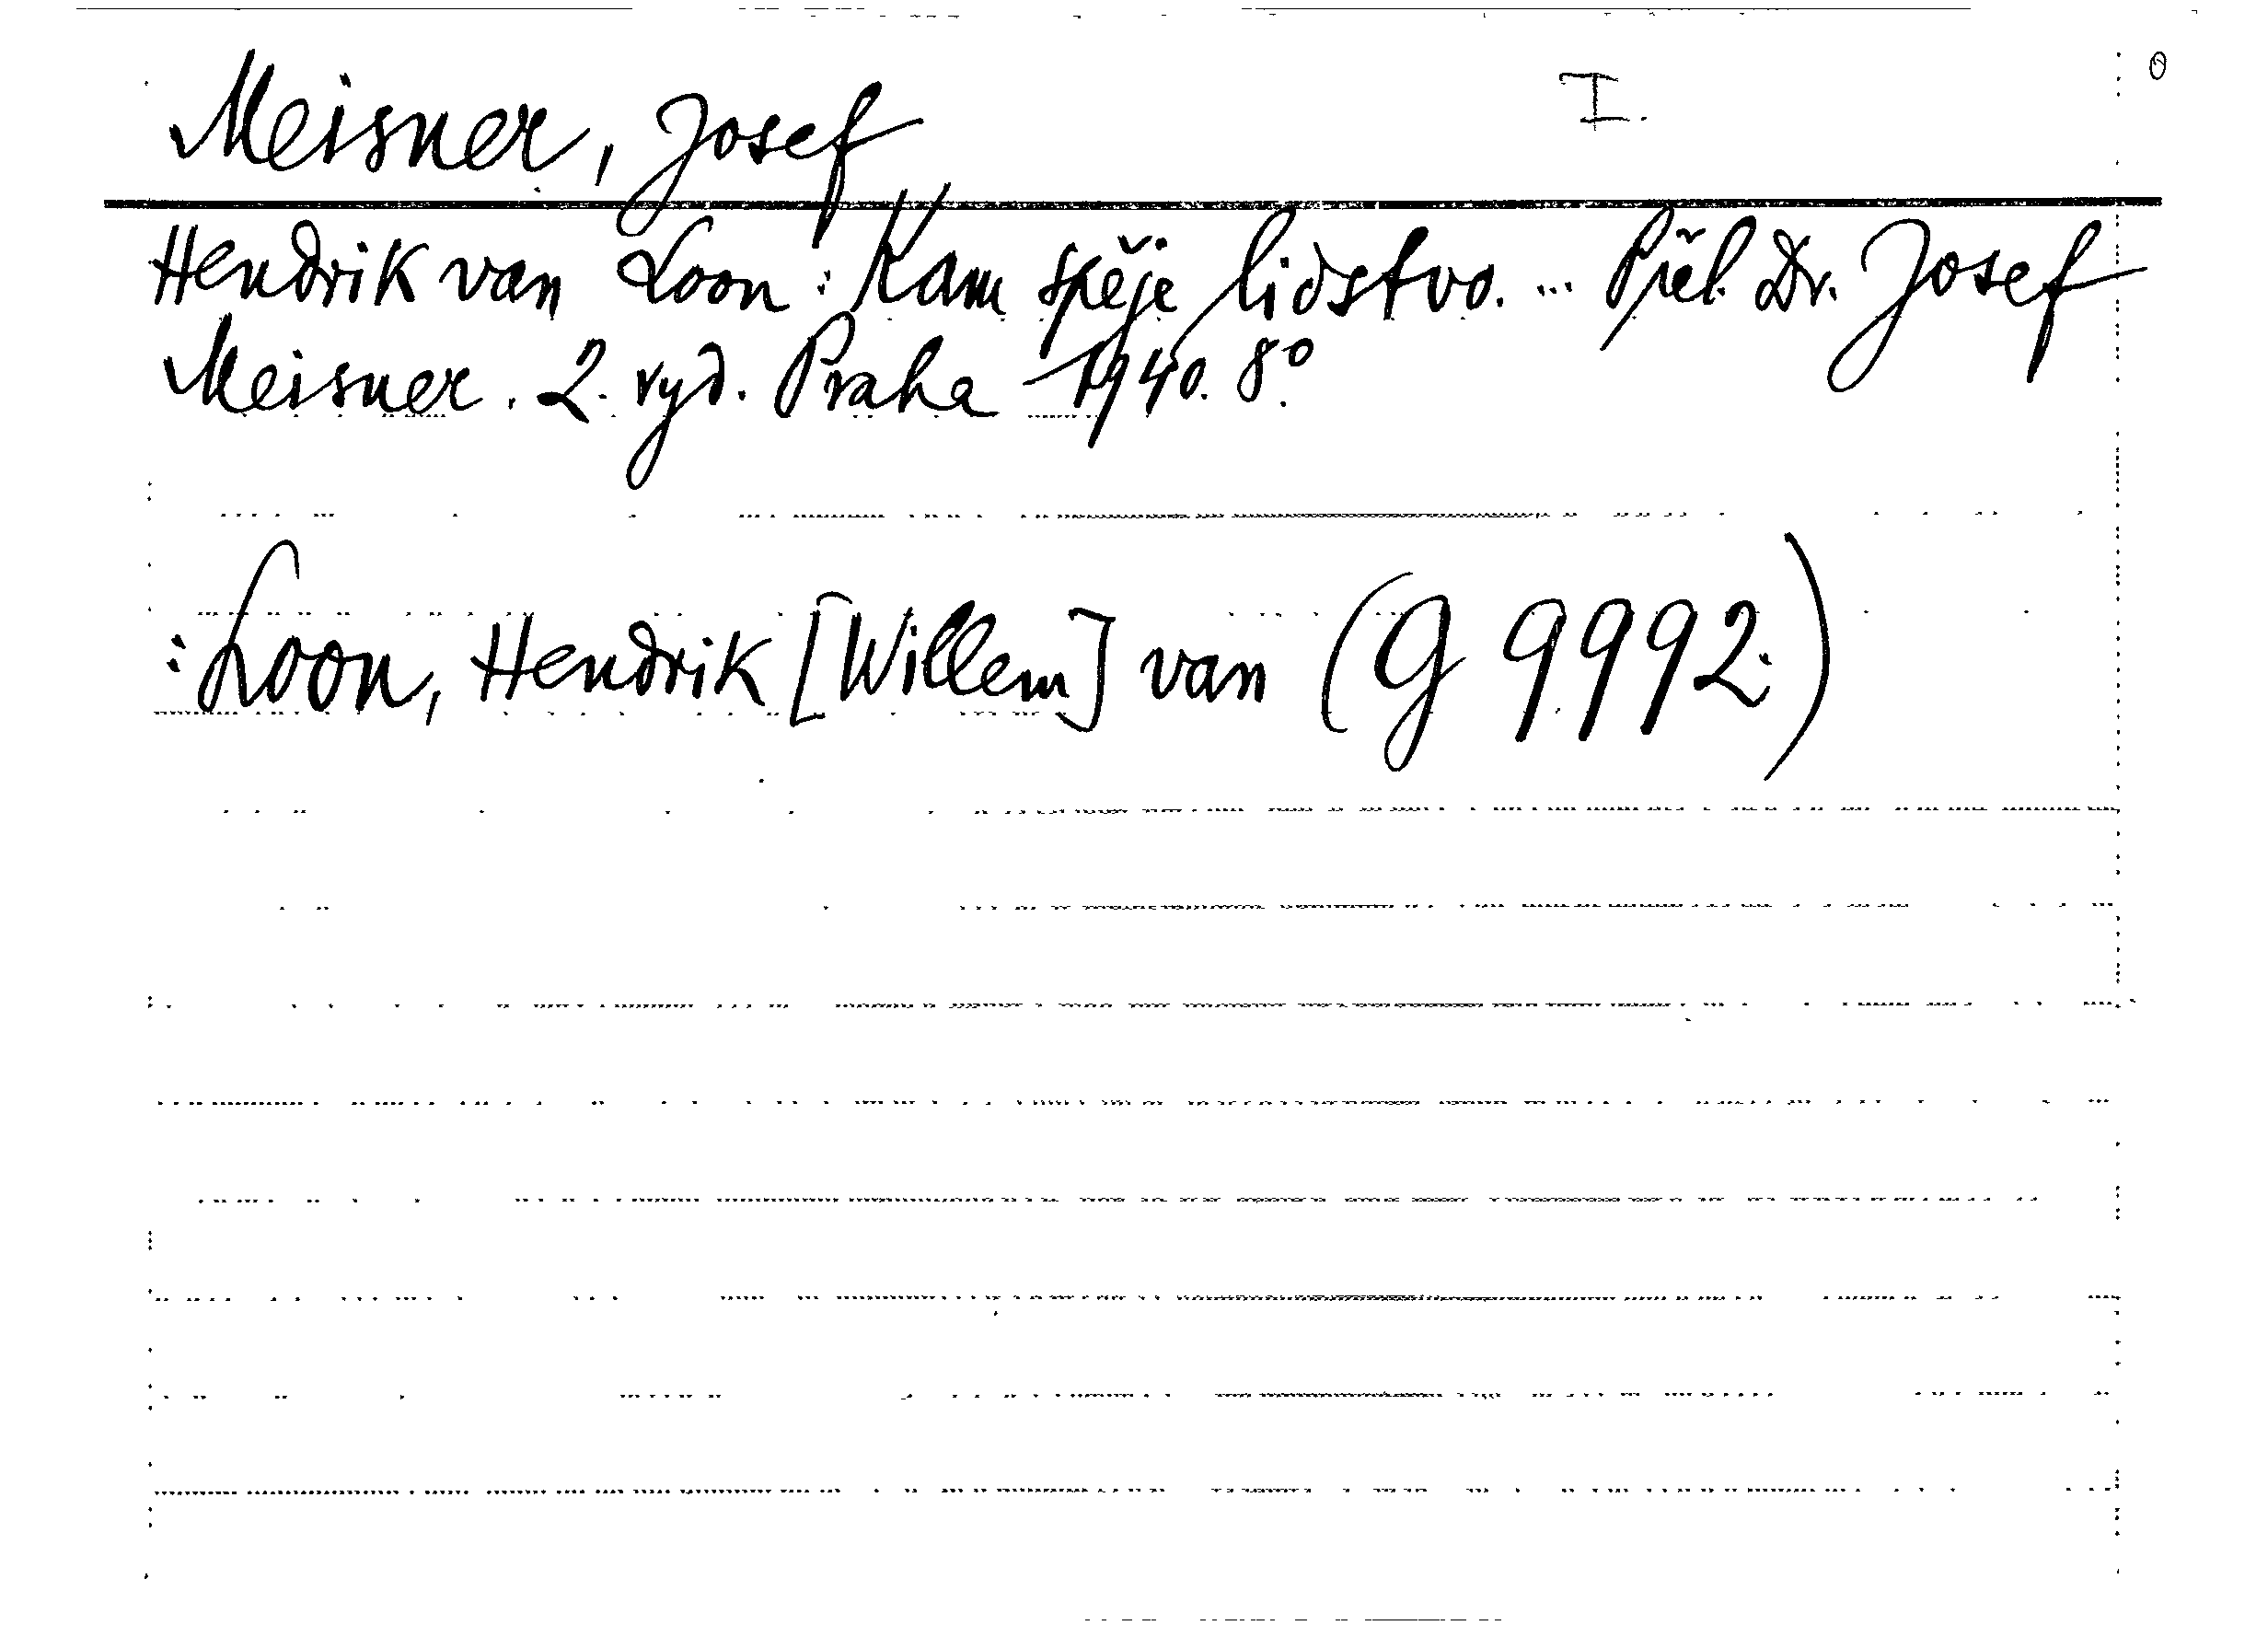 Meisner, Josef I. 0
Hendrik van Loon: Kam spěje lidstvo. ... Přel. Dr. Josef
Meisner. 2. vyd. Praha 1940. 8°.
: Loon, Hendrik [Willem] van (G 9992.)